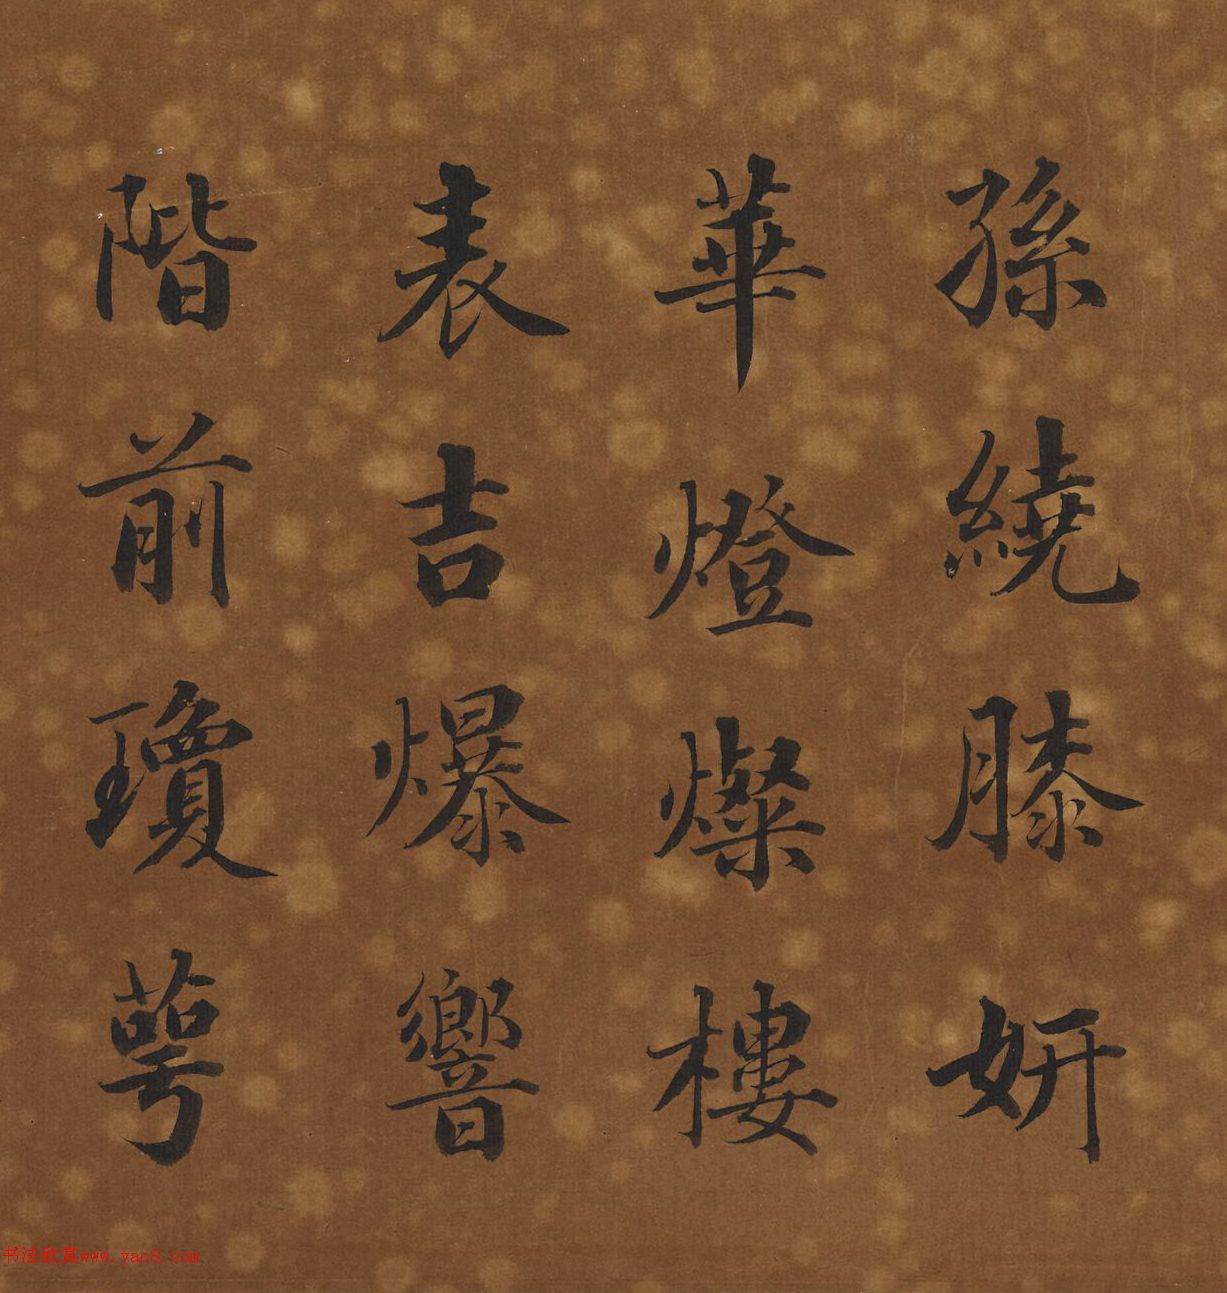 孫繞膝妍
華燈燦樓
表吉爆響
階前瓊萼
书法欣赏www.yac8.com